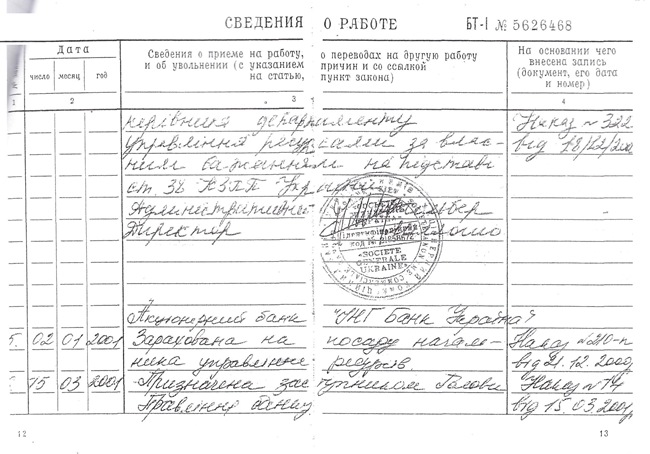 СВЕДЕНИЯ О РАБОТЕ БТ-I № 5626468
Дата
число месяц год
Сведения о приеме на работу, о переводах на другую работу
и об увольнении (с указанием причин и со ссылкой
на статью, пункт закона)
На основании чего
внесена запись
(документ, его дата
и номер)
1 2 3 4
керівника департаменту Наказ № 322
управління ресурсами за влас- від 18/12/200
ним бажанням на підставі
ст. 38 КЗПП України
Административний
Директор
"SOCIETE
GENERALE
UKRAINE"
Акціонерний банк "ІНГ Банк Україна"
5. 02 01 2001 Зарахована на посаду началь- Наказ №210-п
ника управління ресурсів від 21.12.2000р
15 03 2001 Призначена заступником Голови Наказ №74
Правління банку від 15.03.2001р
12 13